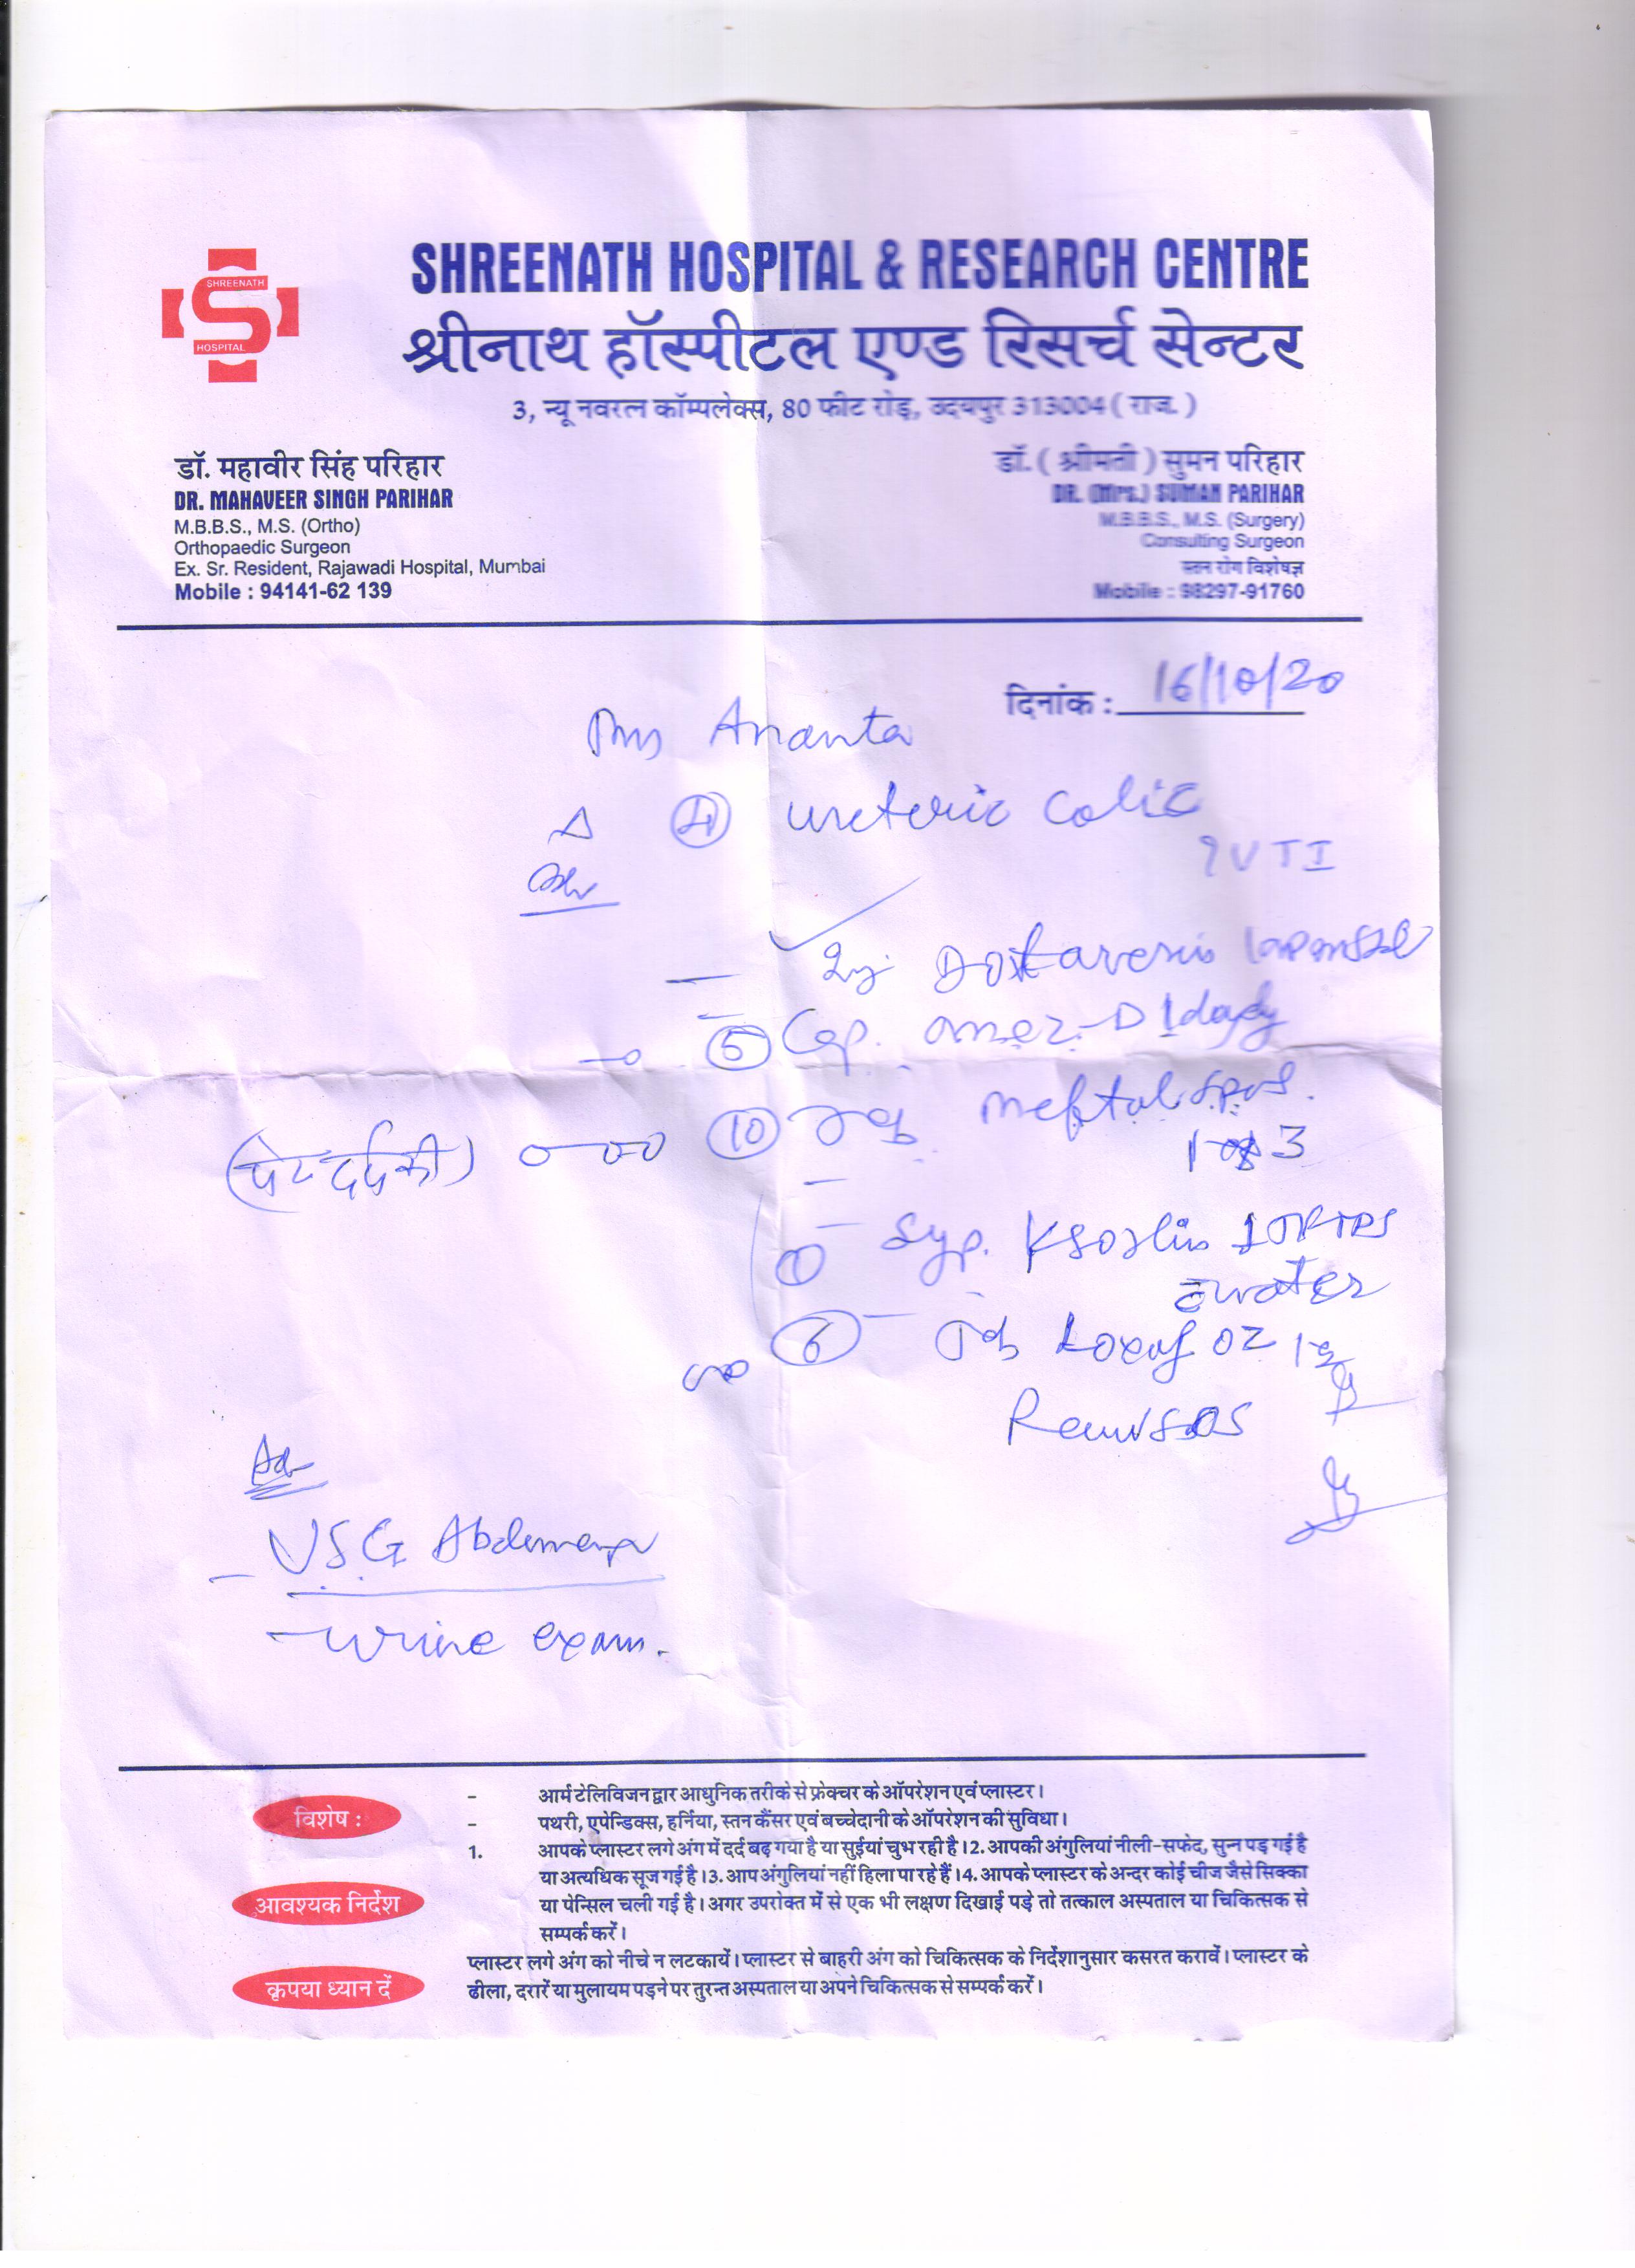 SHREENATH
HOSPITAL
SHREENATH HOSPITAL & RESEARCH CENTRE
श्रीनाथ हॉस्पीटल एण्ड रिसर्च सेन्टर
3, न्यू नवरत्न कॉम्पलेक्स, 80 फीट रोड़, उदयपुर 313004 ( राज. )
डॉ. महावीर सिंह परिहार
DR. MAHAVEER SINGH PARIHAR
M.B.B.S., M.S. (Ortho)
Orthopaedic Surgeon
Ex. Sr. Resident, Rajawadi Hospital, Mumbai
Mobile : 94141-62 139
डॉ. ( श्रीमती ) सुमन परिहार
DR. (Mrs.) SUMAN PARIHAR
M.B.B.S., M.S. (Surgery)
Consulting Surgeon
स्तन रोग विशेषज्ञ
Mobile : 98297-91760
दिनांक : 16/10/20
Ananta
Δ ureteric colic
? UTI
- Inj.
- 5 Cap. Omez-D 1 daily
(पेट दर्द की) 10 Tab. Meftal spas.
3
- 1 Syp. 
water
6 - Tab OZ
USG Abdomen
- Urine exam.
विशेष :
- आर्म टेलिविजन द्वार आधुनिक तरीके से फ्रेक्चर के ऑपरेशन एवं प्लास्टर।
- पथरी, एपेन्डिक्स, हर्निया, स्तन कैंसर एवं बच्चेदानी के ऑपरेशन की सुविधा।
आवश्यक निर्देश
1. आपके प्लास्टर लगे अंग में दर्द बढ़ गया है या सुईयां चुभ रही है।2. आपकी अंगुलियां नीली-सफेद, सुन्न पड़ गई है
या अत्यधिक सूज गई है।3. आप अंगुलियां नहीं हिला पा रहे हैं।4. आपके प्लास्टर के अन्दर कोई चीज जैसे सिक्का
या पेन्सिल चली गई है। अगर उपरोक्त में से एक भी लक्षण दिखाई पड़े तो तत्काल अस्पताल या चिकित्सक से
सम्पर्क करें।
कृपया ध्यान दें
प्लास्टर लगे अंग को नीचे न लटकायें। प्लास्टर से बाहरी अंग को चिकित्सक के निर्देशानुसार कसरत करावें। प्लास्टर के
ढीला, दरारें या मुलायम पड़ने पर तुरन्त अस्पताल या अपने चिकित्सक से सम्पर्क करें।